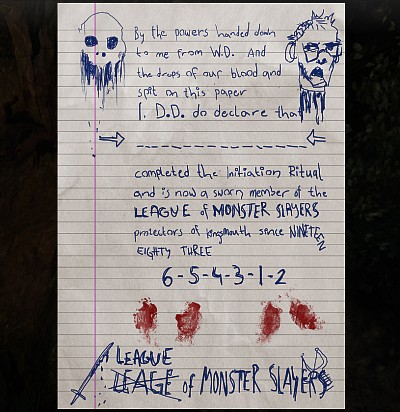 By the powers handed down
to me from W.D. And
the drops of our blood and
spit on this paper
I, D.D. do declare that
completed the Initiation Ritual
and is now a sworn member of the
LEAGUE of MONSTER SLAYERS
protectors of kingsmouth since NINETEEN
EIGHTY THREE
6-5-4-3-1-2
LEAGUE
LEAGE of MONSTER SLAYERS